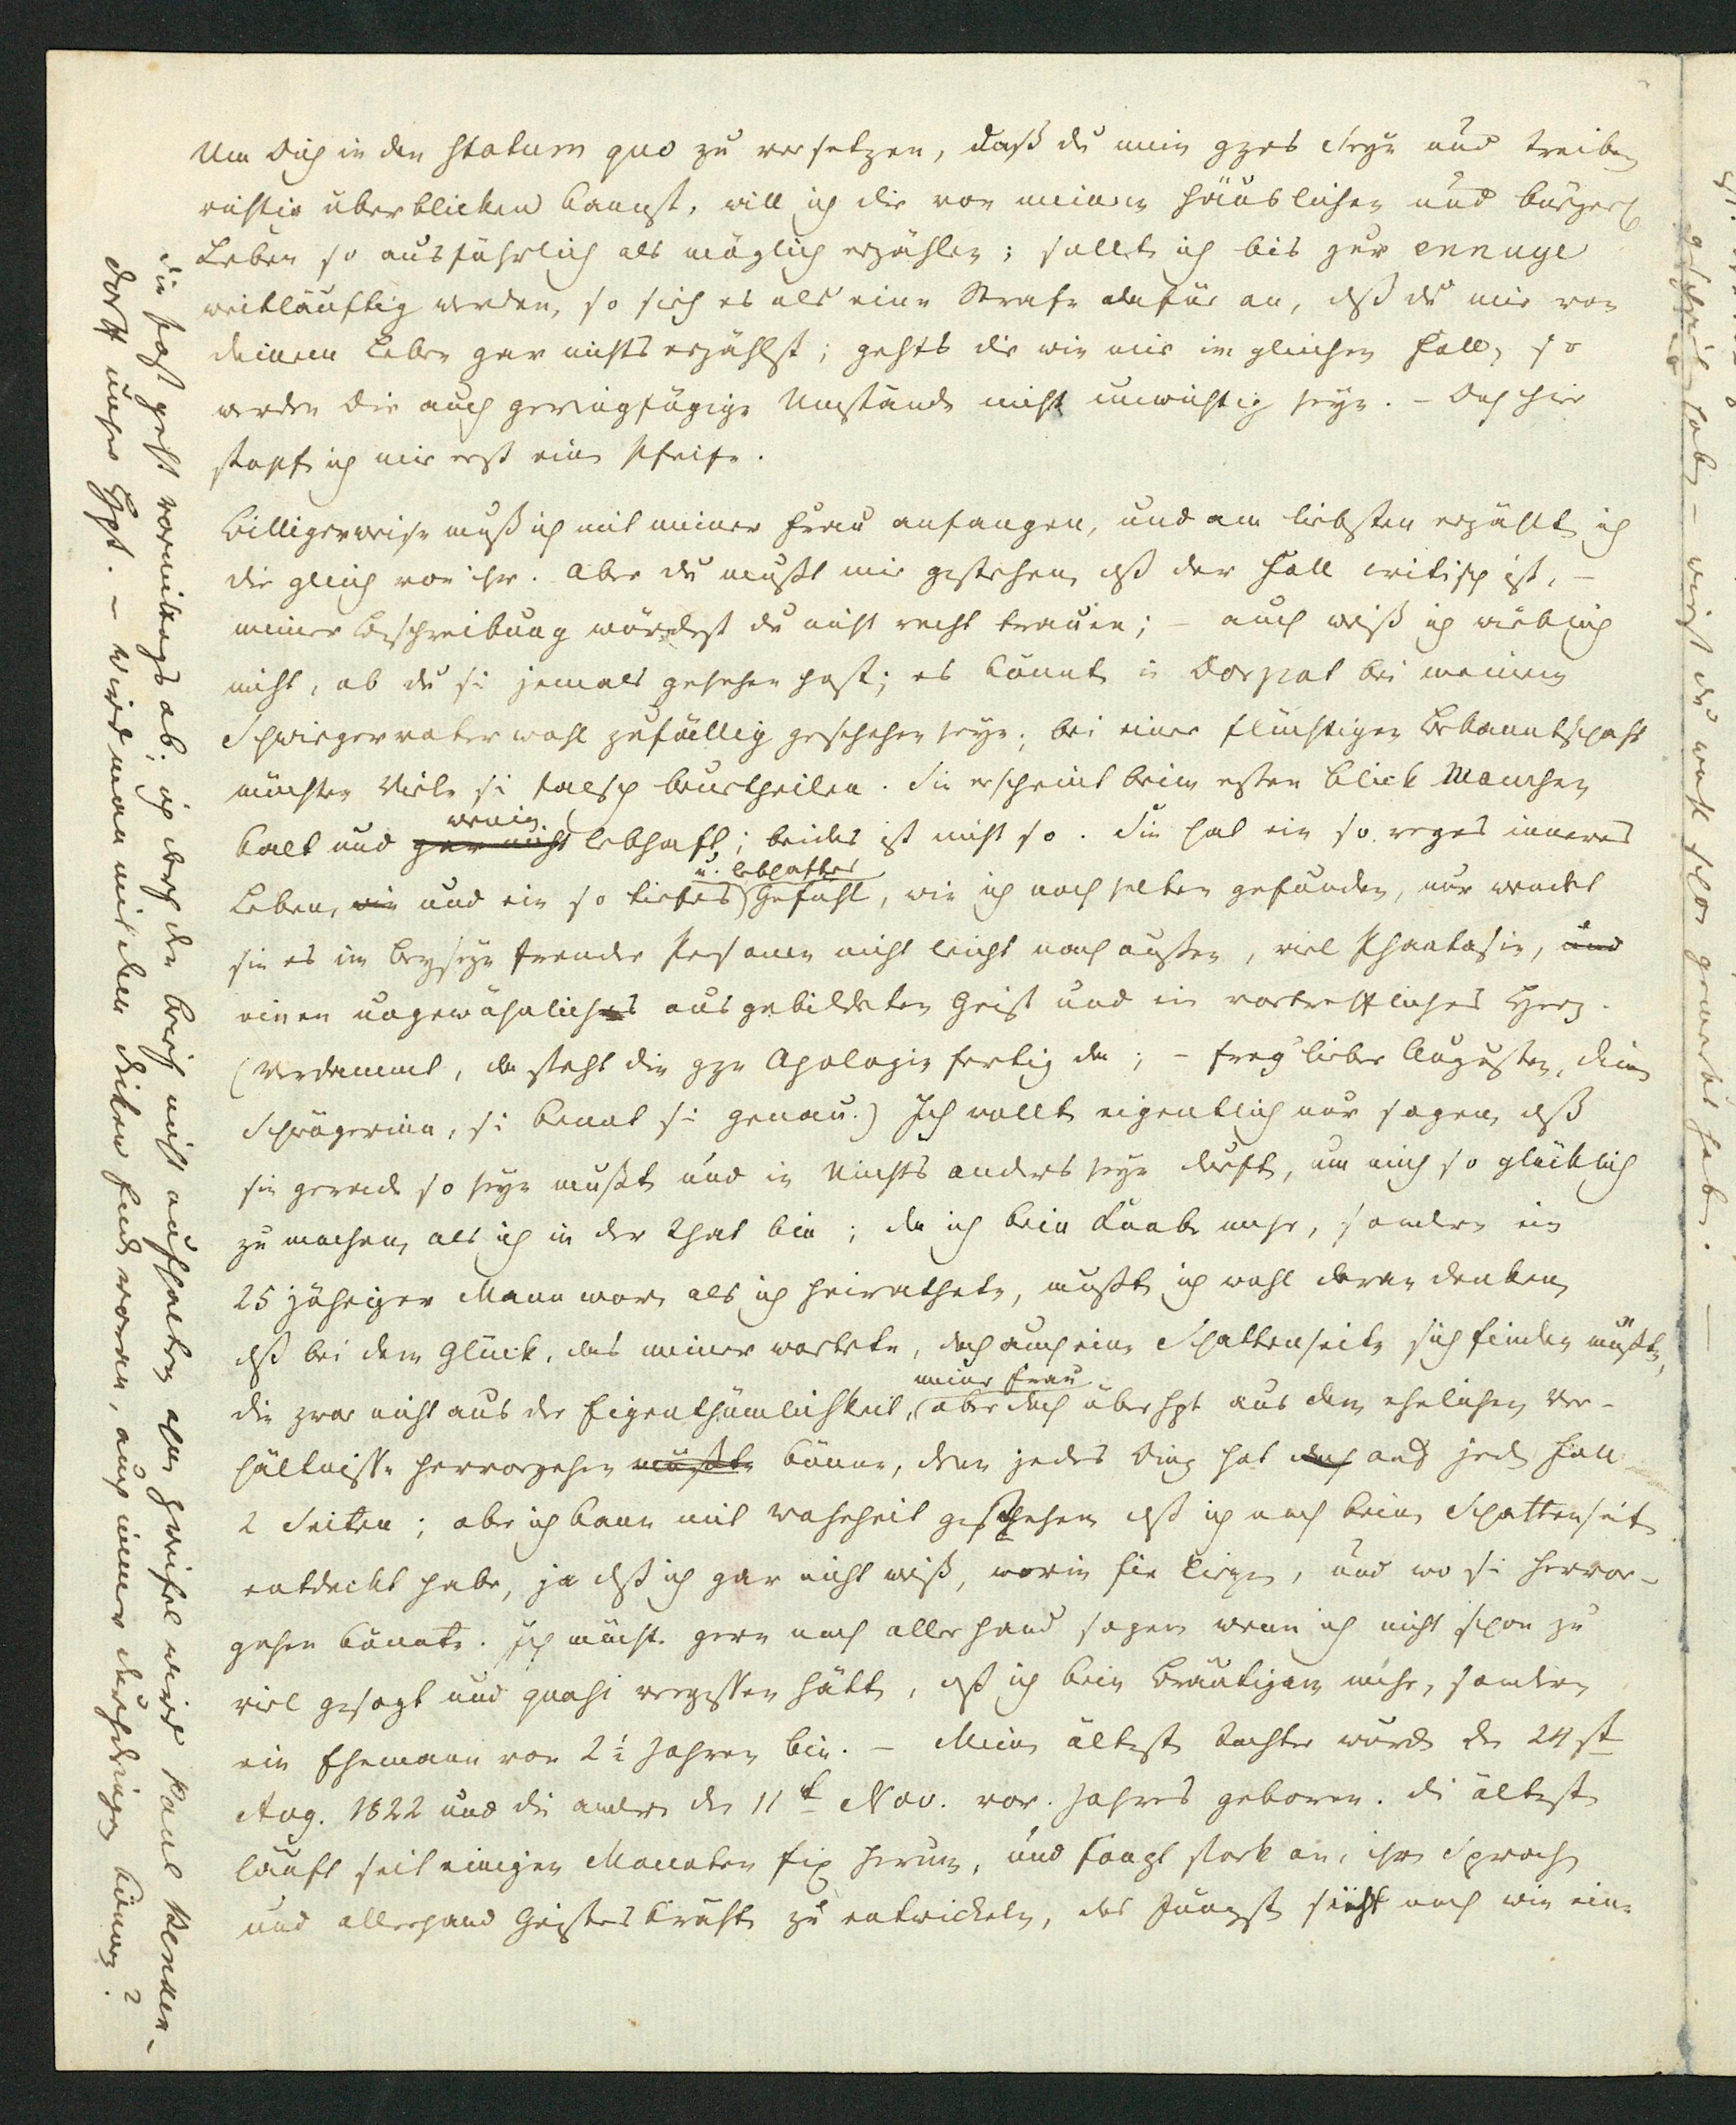 Um Dich in den statum quo zu versetzen, daß du mein gzes Seyn und Treiben
richtig überblicken kannst, will ich dir von meinem häuslichen und bürgerl
Leben so ausführlich als möglich erzählen; sollte ich bis zur ennuye
weitläuftig werden, so sieh es als eine Strafe dafür an, dß du mir von
deinem Leben gar nichts erzählst; gehts dir wie mir im gleichen Fall, so
werden Dir auch geringfügige Umstände nicht unwichtig seyn. – Doch hier
stopfe ich mir erst eine Pfeife.
Billigerweise muß ich mit meiner Frau anfangen, und am liebsten erzählte ich
dir gleich von ihr. Aber du mußt mir gestehen, dß der Fall critisch ist, –
meiner Beschreibung würdest du nicht recht trauen; – auch weiß ich wirklich
nicht, ob du sie jemals gesehen hast; es könnte in Dorpat bei meinem
Schwiegervater wohl zufällig geschehen seyn; bei einer flüchtigen Bekanntschaft
möchten Viele sie falsch beurtheilen. Sie erscheint beim ersten Blick Manchem
kalt und gar nicht wenig lebhaft; beides ist nicht so. Sie hat ein so reges inneres
Leben, ein und ein so tiefes u. lebhaftes Gefühl, wie ich noch selten gefunden, nur wendet
sie es im Beyseyn fremder Personen nicht leicht nach außen, viel Phantasie, und
einen ungewöhnliches ausgebildeten Geist und ein vortreffliches Herz.
(Verdammt, da steht die gze Apologie fertig da; – frag' liebe Augusten, deine
Schwägerinn, sie kennt sie genau.) Ich wollte eigentlich nur sagen, dß
sie gerade so seyn mußte und in Nichts anders seyn durfte, um mich so glücklich
zu machen, als ich in der That bin; da ich kein Knabe mehr, sondern ein
25 jähriger Mann war, als ich heirathete, mußte ich wohl daran denken,
dß bei dem Glück, das meiner wartete, doch auch eine Schattenseite sich finden müßte,
die zwar nicht aus der Eigenthümlichkeit meiner Frau, aber doch überhpt aus dem ehelichen Ver-
hältnisse hervorgehen müßte könne, denn jedes Ding hat doch auf jeden Fall
2 Seiten; aber ich kann mit Wahrheit gestehen dß ich noch keine Schattenseite
entdeckt habe, ja dß ich gar nicht weiß, worin sie liegen, und wo sie hervor-
gehen könnte. Ich möchte gern noch allerhand sagen wenn ich nicht schon zu
viel gesagt und quasi vergessen hätte, dß ich kein Bräutigam mehr, sondern
ein Ehemann von 2½ Jahren bin. – Meine älteste Tochter wurde den 24st
Aug. 1822 und die andere den 11t Nov. vor. Jahres geboren. Die älteste
läuft seit einigen Monaten fix herum, und fängt stark an, ihre Sprach
und allerhand Geisteskräfte zu entwickeln, das Jüngste sieht noch wie eine
Die Post geht vormittags ab; ich darf den Brief nicht aufhalten, ohne Zweifel wird Paul
dort unser Hpt. – Wird man mit den dicken Ende voran, auch immer durchdringen können?
geschrieben habe – wirst du wohl schon gemerkt haben. –